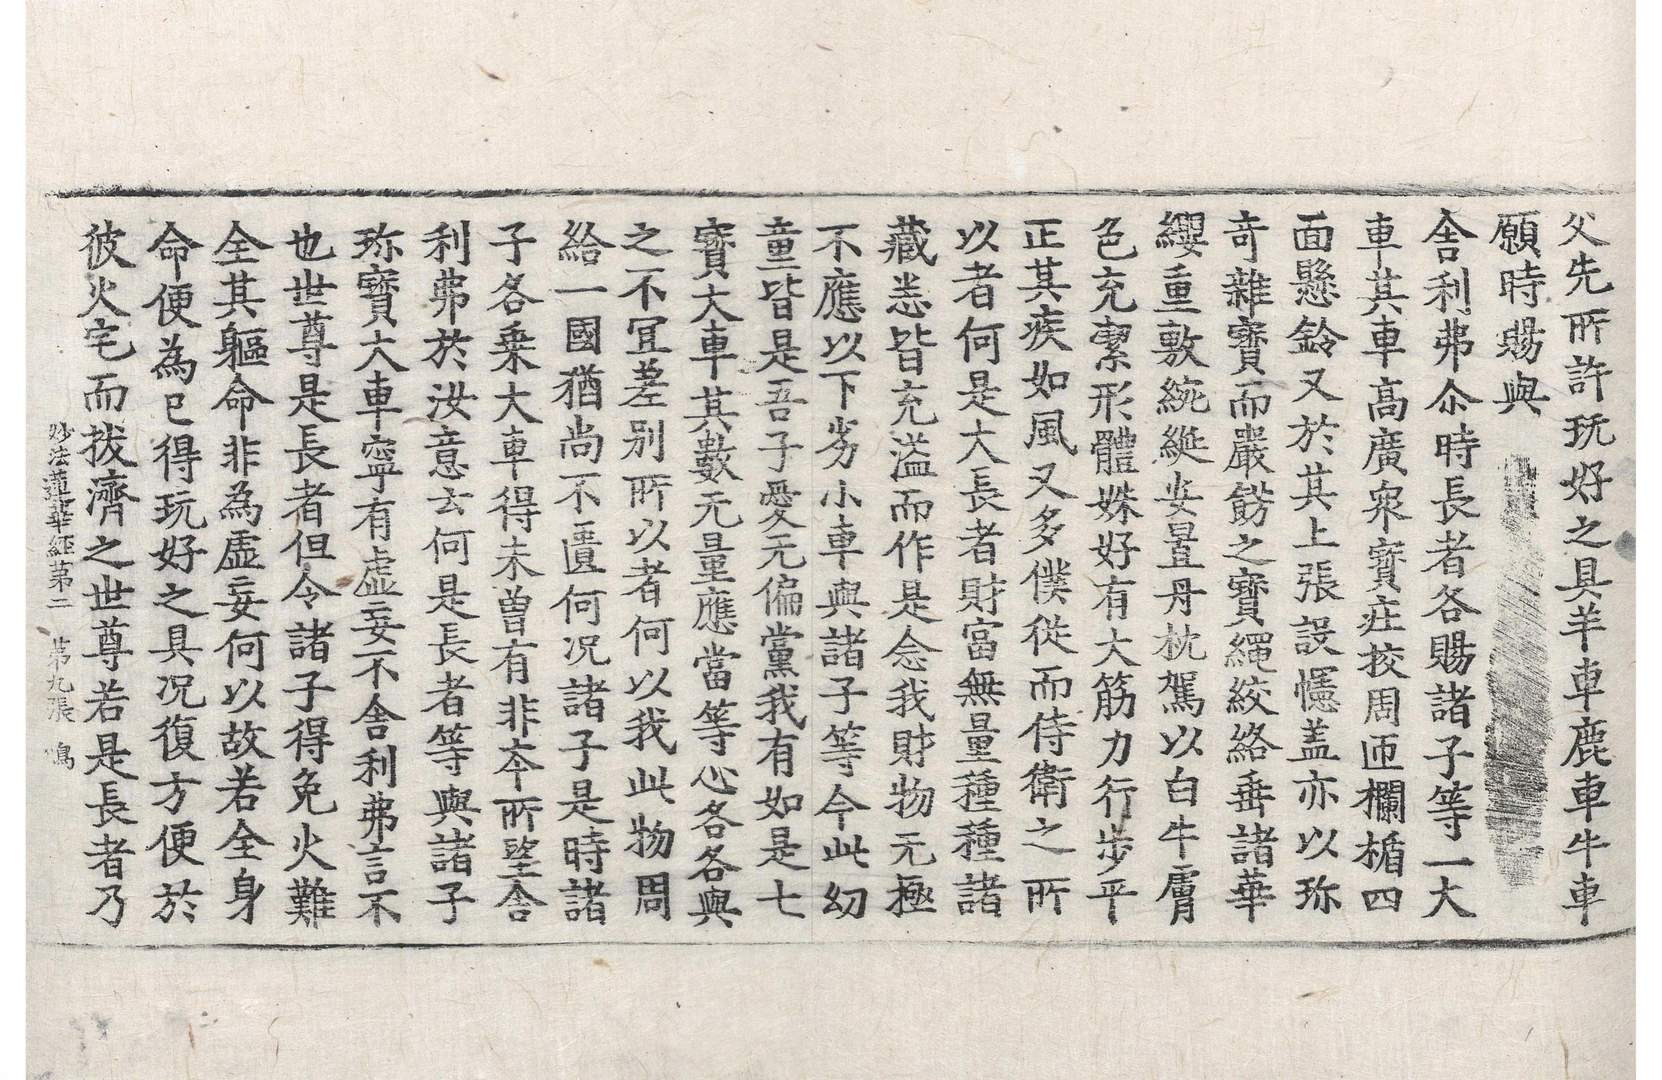 父先所許玩好之具羊車鹿車牛車
願時賜與
舍利弗尒時長者各賜諸子等一大
車其車高廣衆寶莊挍周匝欄楯四
面懸鈴又於其上張設幰盖亦以珎
奇雜寶而嚴餝之寶繩絞絡垂諸華
纓重敷綩綖安置丹枕駕以白牛膚
色充潔形體姝好有大筋力行步平
正其疾如風又多僕從而侍衛之所
以者何是大長者財富無量種種諸
藏悉皆充溢而作是念我財物无極
不應以下劣小車與諸子等今此幼
童皆是吾子愛无偏黨我有如是七
寶大車其數无量應當等心各各與
之不冝差別所以者何以我此物周
給一國猶尚不匱何况諸子是時諸
子各乗大車得未曾有非夲所望舍
利弗於汝意云何是長者等與諸子
珎寶大車寧有虛妄不舍利弗言不
也世尊是長者但令諸子得免火難
全其軀命非為虛妄何以故若全身
命便為已得玩好之具况復方便於
彼火宅而拔濟之世尊若是長者乃
妙法蓮華經第二 第九張 鳴